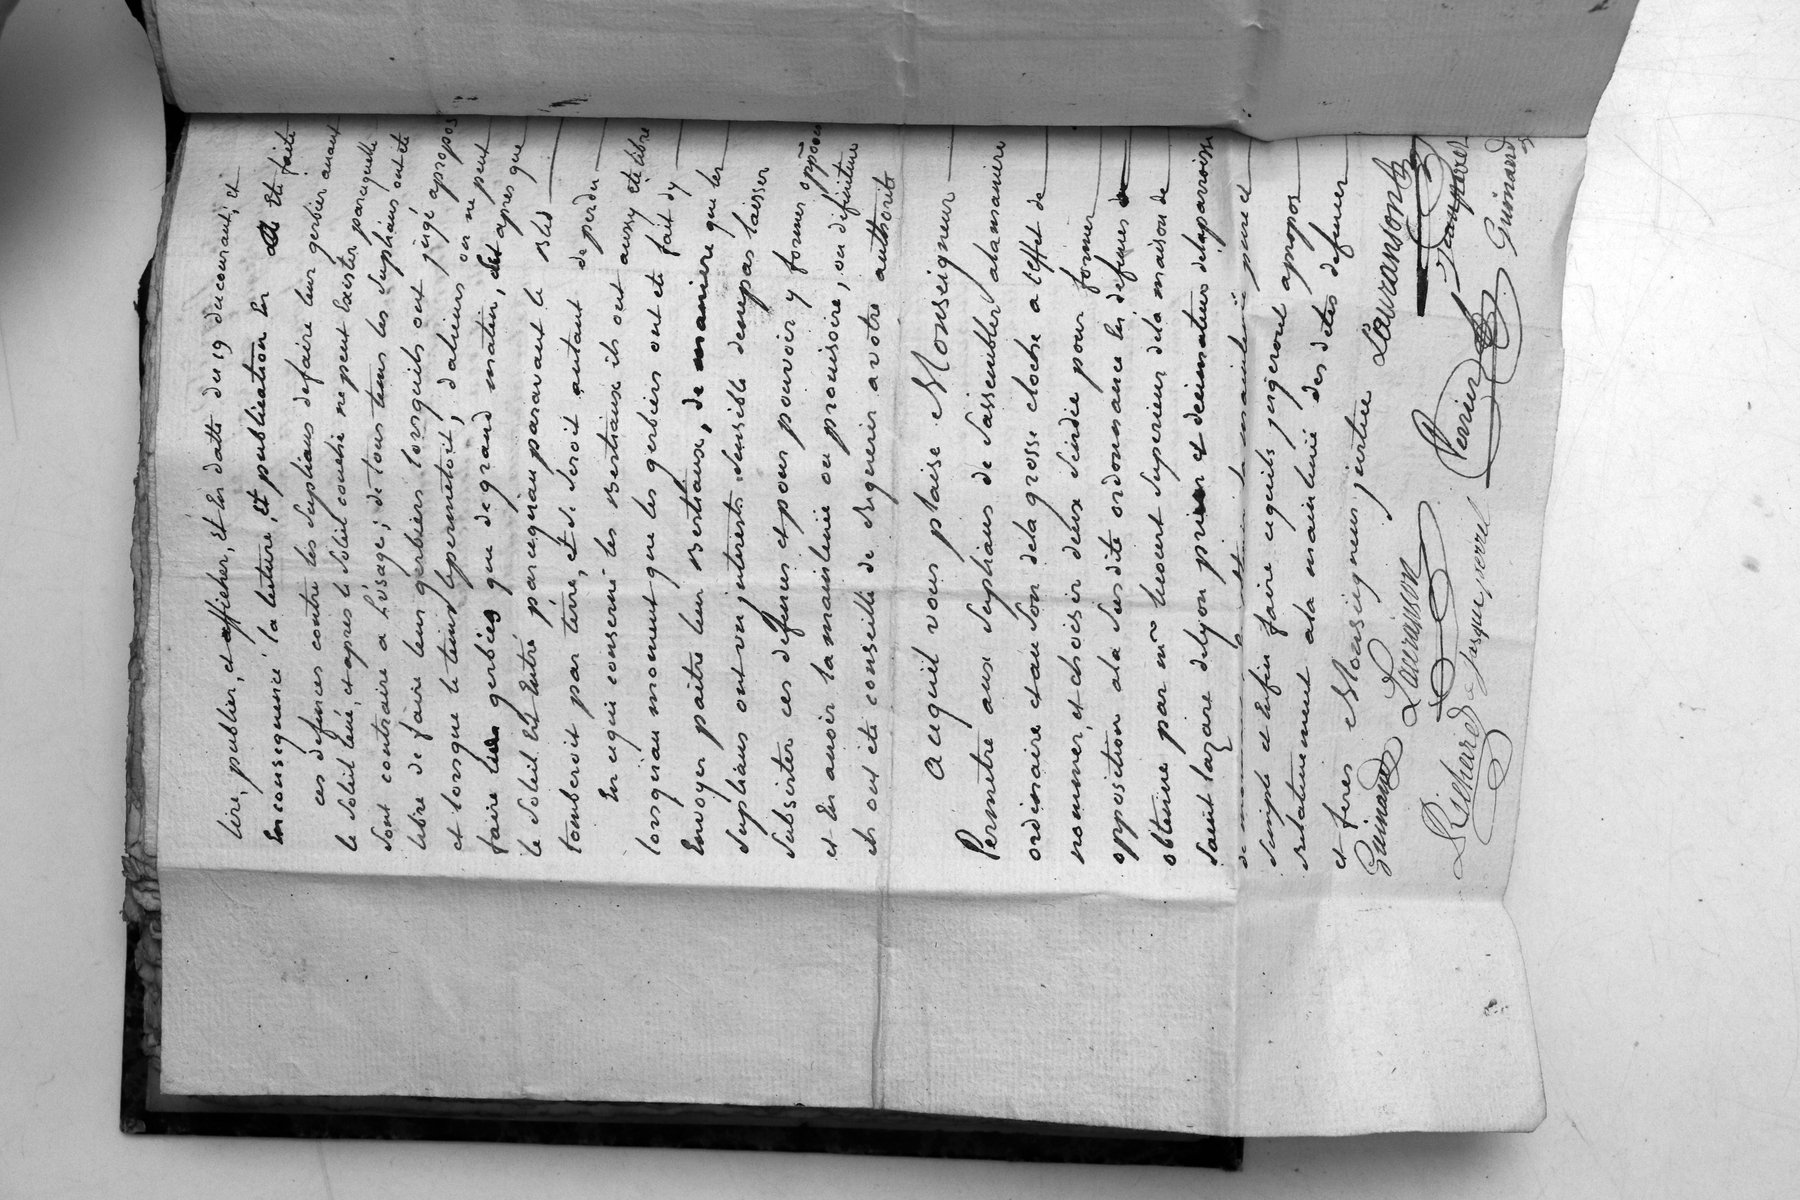 lire, publier, et afficher, Et En datte du 19 du courant, et
En consequence la lecture, Et publication En a Eté faite
ces defences contre les suplians de faire leur gerbier avant
le Soleil levé, et apres le Soleil couché ne peut Exister parcequelle
sont contraire a L'usage; de tous tems les suplians ont été
libre de faire leur gerbiers lorsquils ont jugé apropos
et lorsque le tems le permetoit; dailieurs on ne peut
faire les gerbies que de grand matin, Et apres que
le Soleil Est Entré parcequ'au paravant le Bled
tomberoit par terre, et se seroit autant de perdu
En ce qui conserne les Bestiaux ils ont aussy été libre
lorsqu'au moment que les gerbiers ont eté fait d'y
Envoyer paitre leur Bestiaux, de maniere que les
suplians ont un interest sensible de ne pas laisser
subsister ces defences et pour pouvoir y former oppõon
et En avoir la mainlevée ou provisoire, ou definitive
ils ont eté conseillé de Requerir a votre authorité
A ce qu'il vous plaise Monseigneur
Permetre aux suplians de s'assembler a la maniere
ordinaire et au Son de la grosse cloche a l'effet de
nommer, et choisir deux sindic pour former
opposition a la susdite ordonnance En defences
obtenue par mre superieur de la maison de
saint lazare de lyon prieur et decimateur de la parroisse
de et pure et
simple et Enfin faire ce qu'ils jugeront apropos
relativement a la mainlevée des dites defences
et feres Monseigneur justice Lauransont
Guinand Lauranson Perrin Guinand
Richard jasque perrel